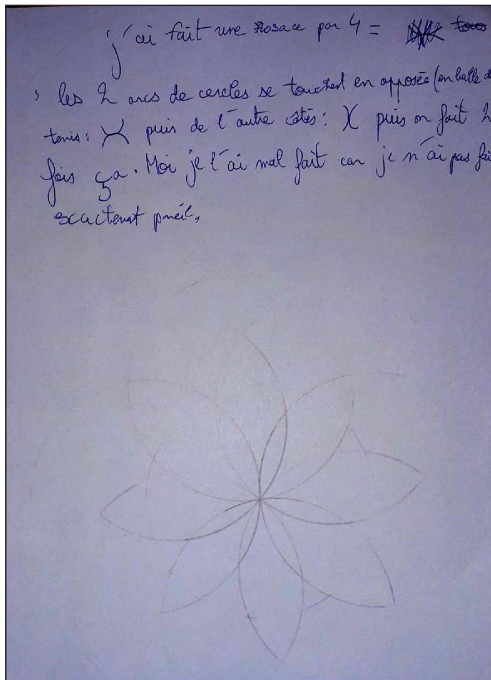 j'ai fait une Rosace par 4 =
les 2 arcs de cercles se touchent en opposée (en balle de
tenis: puis de l'autre côtés: puis on fait 2
fois ça. Moi je l'ai mal fait car je n'ai pas fai
exactement pareil,